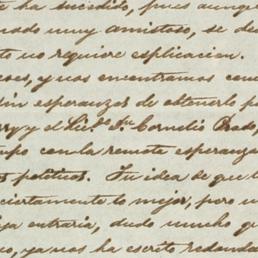 te ha sucedido, pues aunque
modo muy amistoso, se de
to no requiere esplicacion.
cos, y nos encontramos con
sin esperanzas de obtenerlo p
y el Lic.do Dn Cornelio Prado,
po con la remota esperanza
s politicos. Tu idea de que l
ciertamente lo mejor, pero u
ja contraria, dudo mucho q
o, ya nos ha escrito redonda